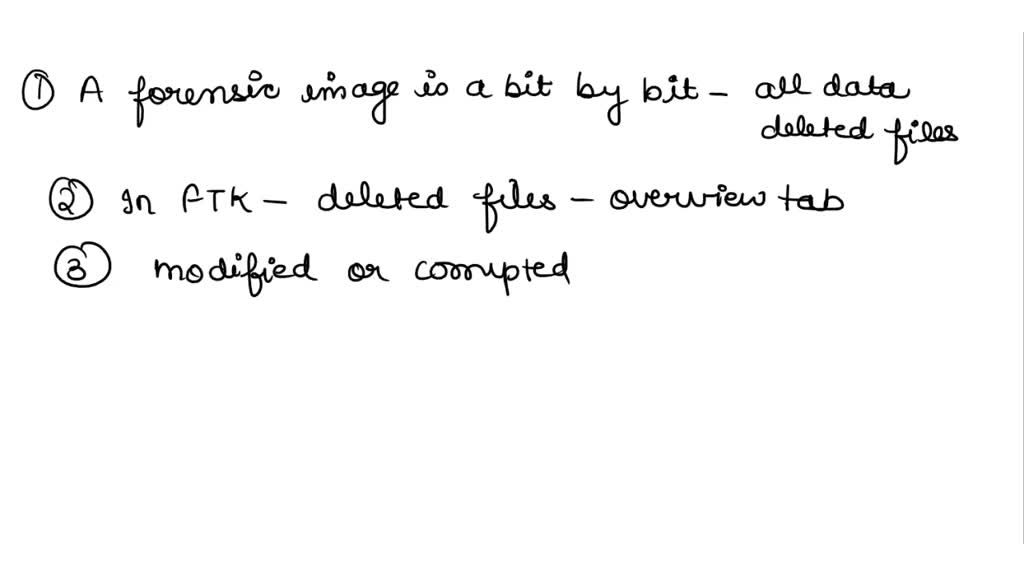 ① A forensic image is a bit by bit - all data
deleted files
② In FTK - deleted files - overview tab
③ modified or corrupted